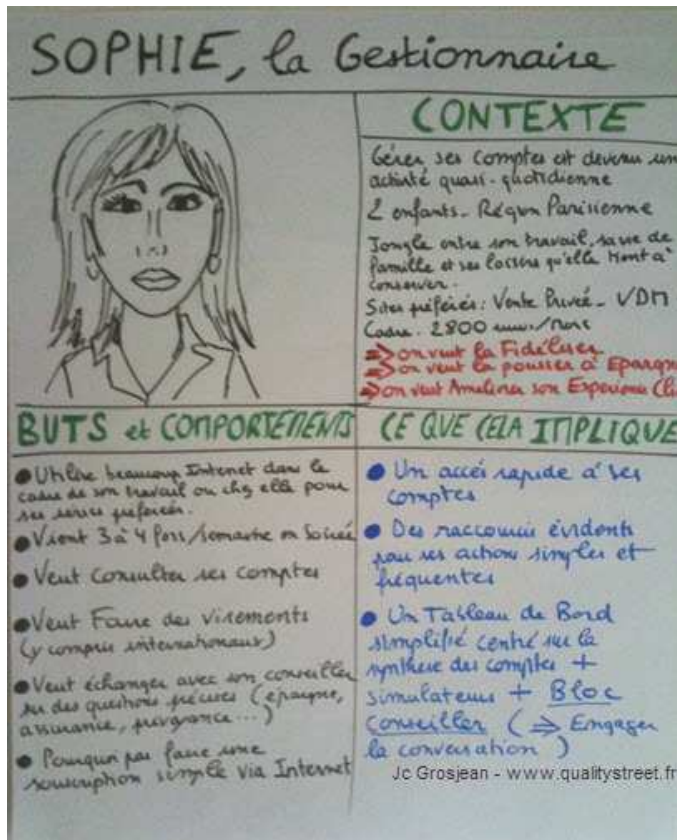 SOPHIE, la Gestionnaire
CONTEXTE
Gérer ses comptes est devenu une
activité quasi-quotidienne
2 enfants - Région Parisienne
Jongle entre son travail, sa vie de
famille et ses loisirs qu'elle tient à
conserver.
Sites préférés : Vente Privée - VDM
Cadre. 2800 euros/mois
⇒ on veut la Fidéliser
⇒ on veut la pousser à Epargn
⇒ on veut Améliorer son Experience Cli
BUTS et COMPORTEMENTS
● Utilise beaucoup Internet dans le
cadre de son travail ou chez elle pour
ses services préférés.
● Vient 3 à 4 fois/semaine en Soirée
● Veut Consulter ses comptes
● Veut Faire des virements
(y compris internationaux)
● Veut échanger avec son conseiller
sur des questions précises (épargne,
assurance, prévoyance...)
● Pourquoi pas faire une
souscription simple via Internet
CE QUE CELA IMPLIQUE
● Un accès rapide à ses
comptes
● Des raccourcis évidents
pour ses actions simples et
fréquentes
● Un Tableau de Bord
simplifié centré sur la
synthèse des comptes +
simulateurs + Bloc
Conseiller (⇒ Engager
la conversation)
Jc Grosjean - www.qualitystreet.fr